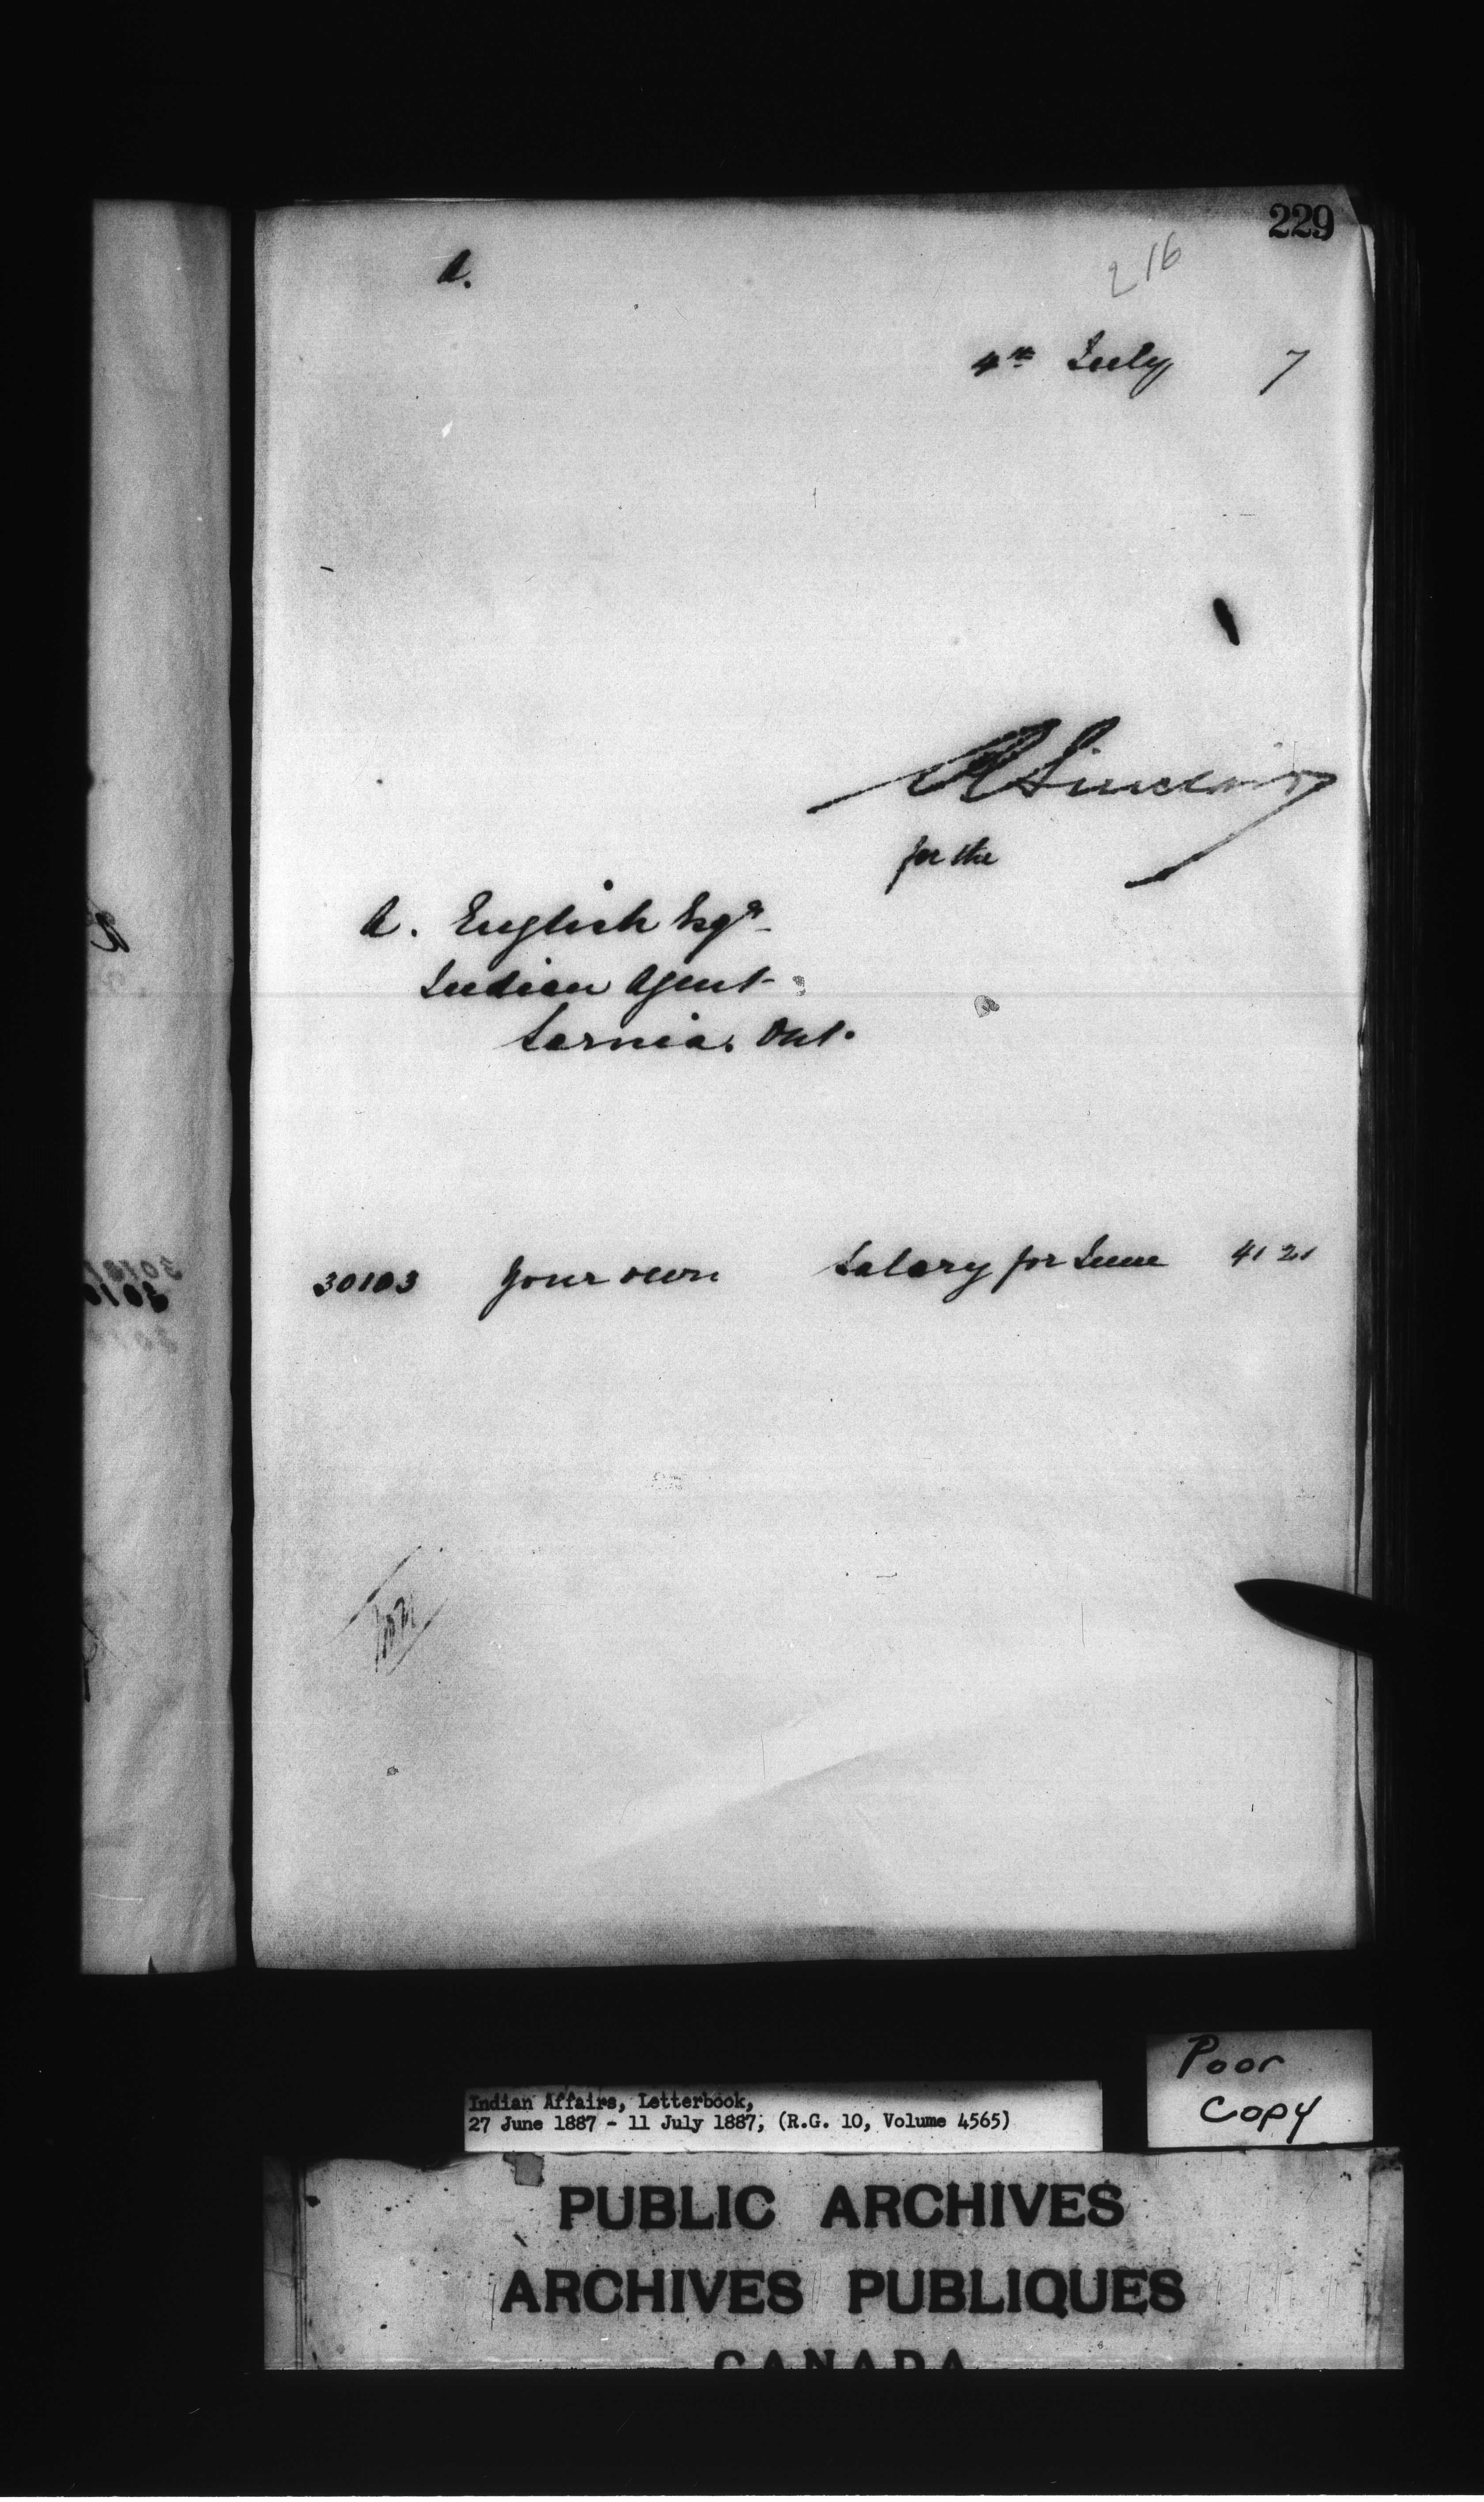 229
A.
216
4th July 7
R Sinclair
for the
A. English Esqr
Indian Agent
Sarnia. Ont.
30103 Your own Salary for June 41 21
Poor
Copy
Indian Affairs, Letterbook,
27 June 1887 - 11 July 1887, (R.G. 10, Volume 4565)
PUBLIC ARCHIVES
ARCHIVES PUBLIQUES
CANADA